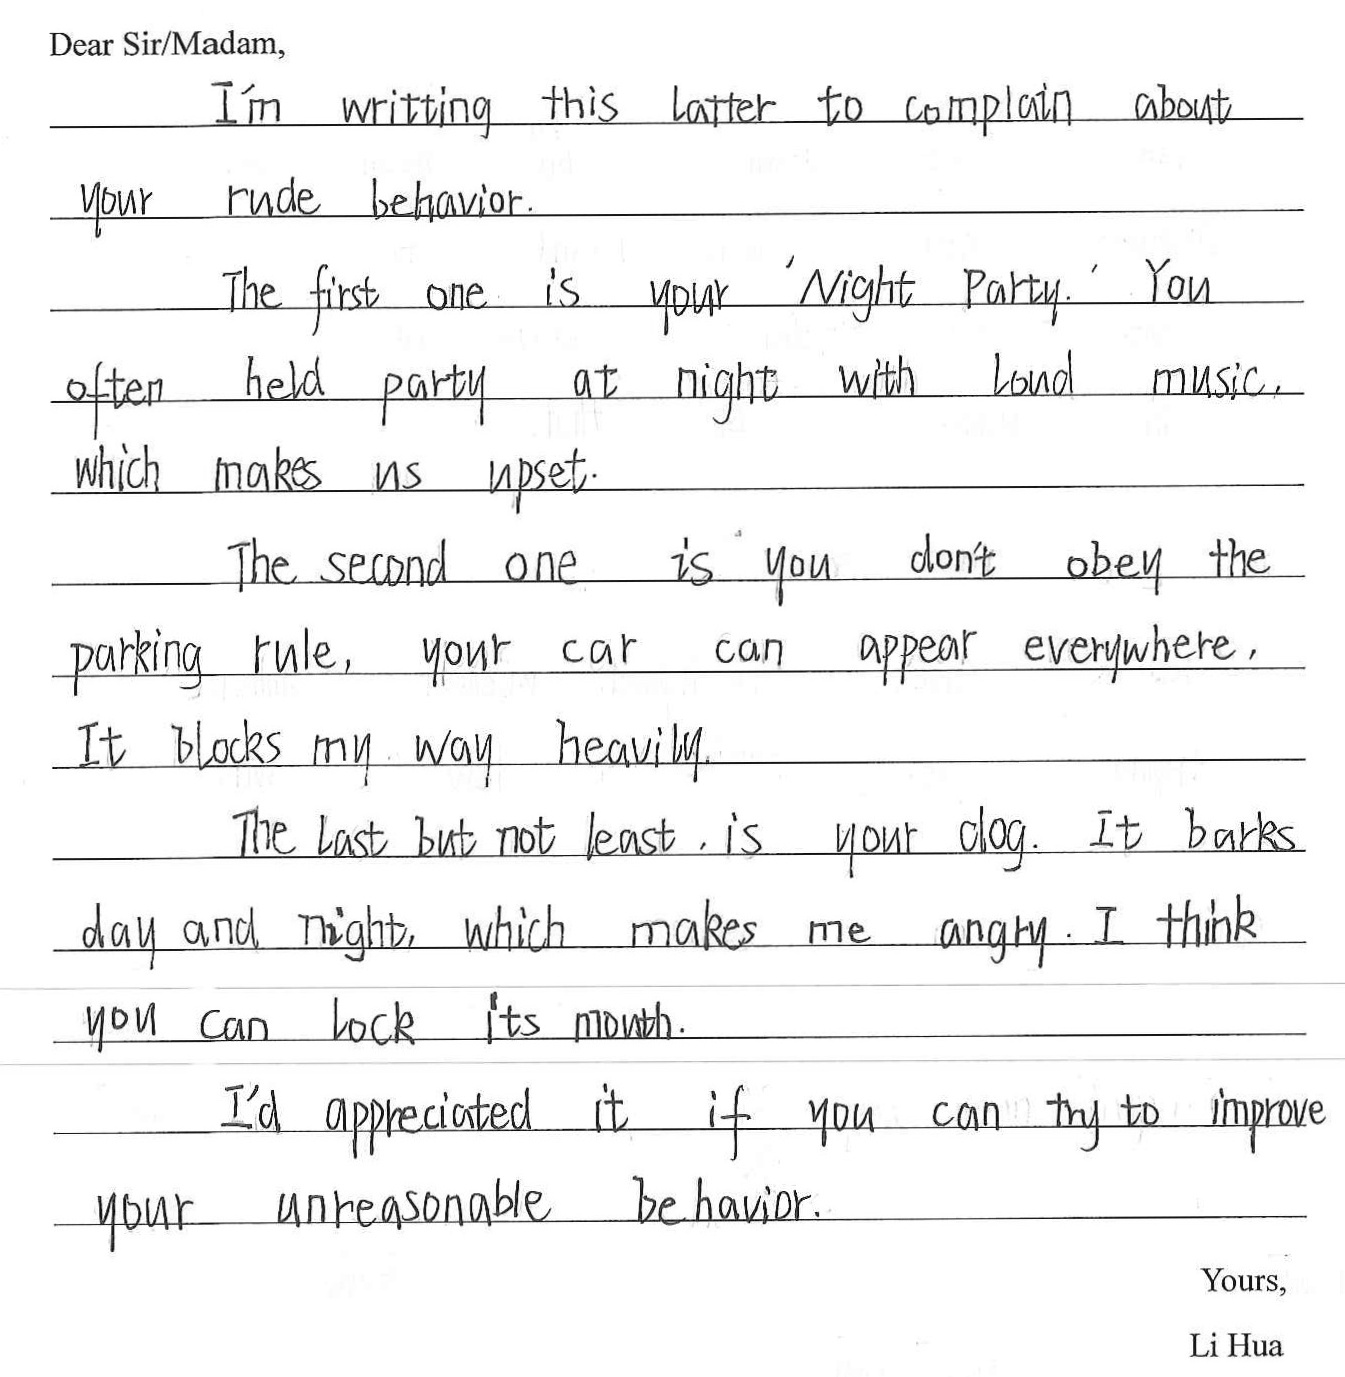 Dear Sir/Madam,
I'm writting this latter to complain about
your rude behavior.
The first one is your 'Night Party.' You
often held party at night with loud music,
which makes us upset.
The second one is you don't obey the
parking rule, your car can appear everywhere,
It blocks my way heavily.
The last but not least, is your dog. It barks
day and night, which makes me angry. I think
you can lock its mouth.
I'd appreciated it if you can try to improve
your unreasonable behavior.
Yours,
Li Hua